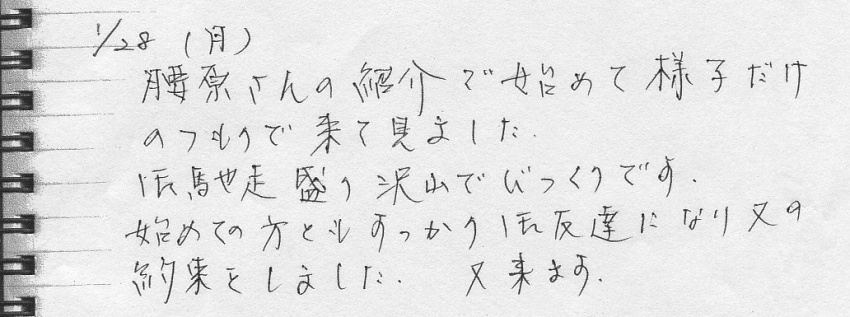 1/28 (月)
腰原さんの紹介で始めて様子だけ
のつもりで来て見ました.
御馳走盛り沢山でびっくりです.
始めての方ともすっかり御友達になり又の
約束をしました. 又来ます.